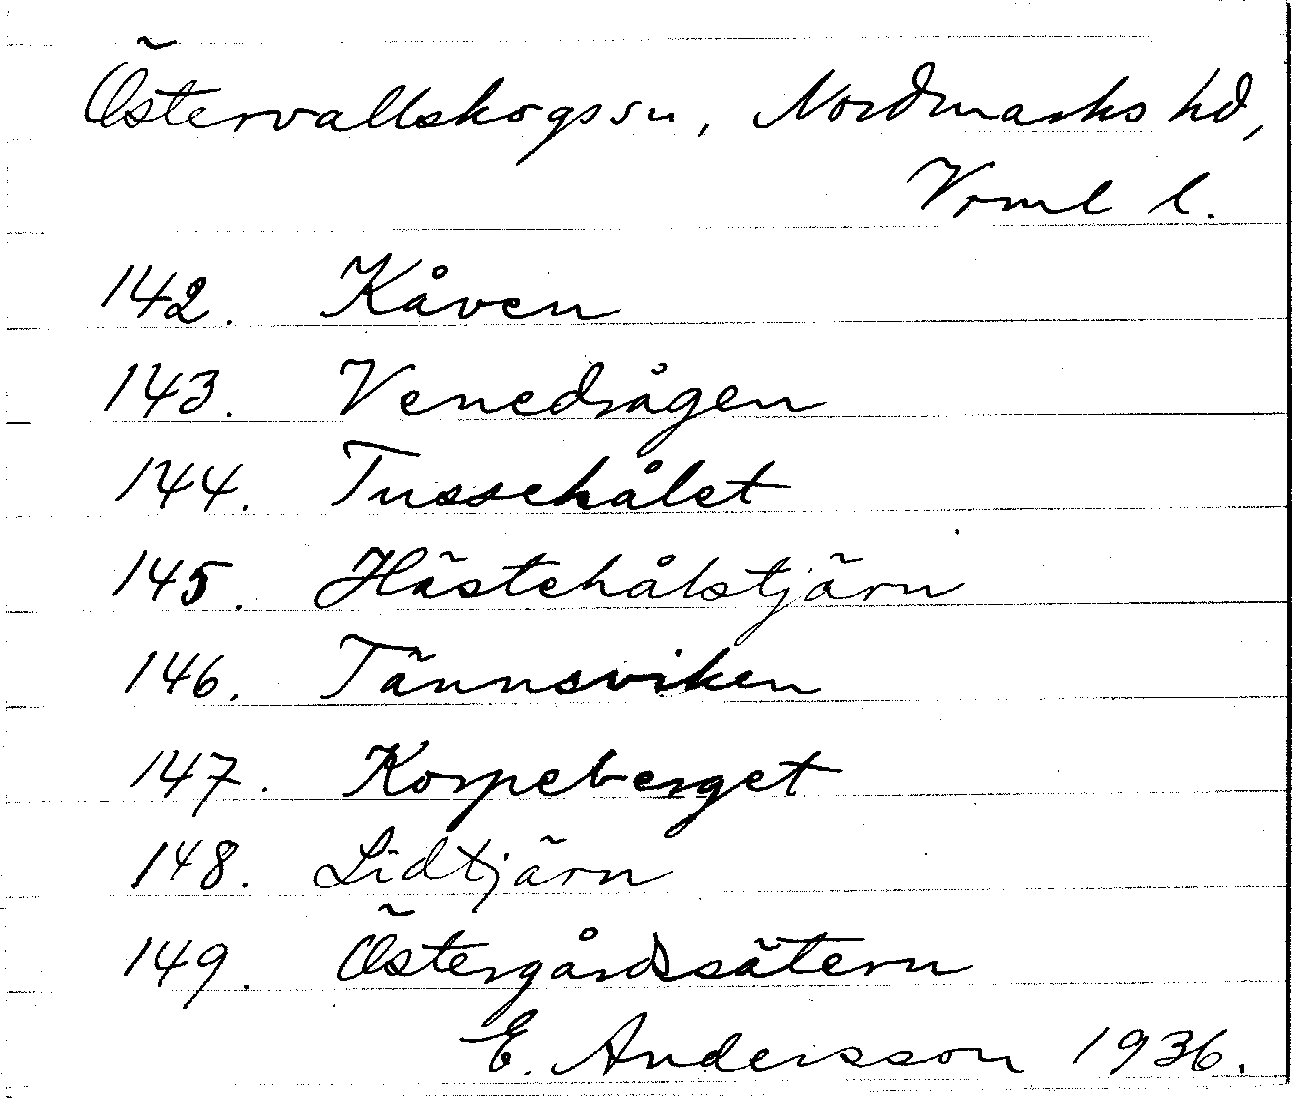 Östervallskogs sn, Nordmarks hd,
Vrml l.
142. Kåven
143. Venedrågen
144. Tussehålet
145. Hästehålstjärn
146. Tännsviken
147. Korpeberget
148. Lidtjärn
149. Östergårdssätern
E. Andersson 1936.